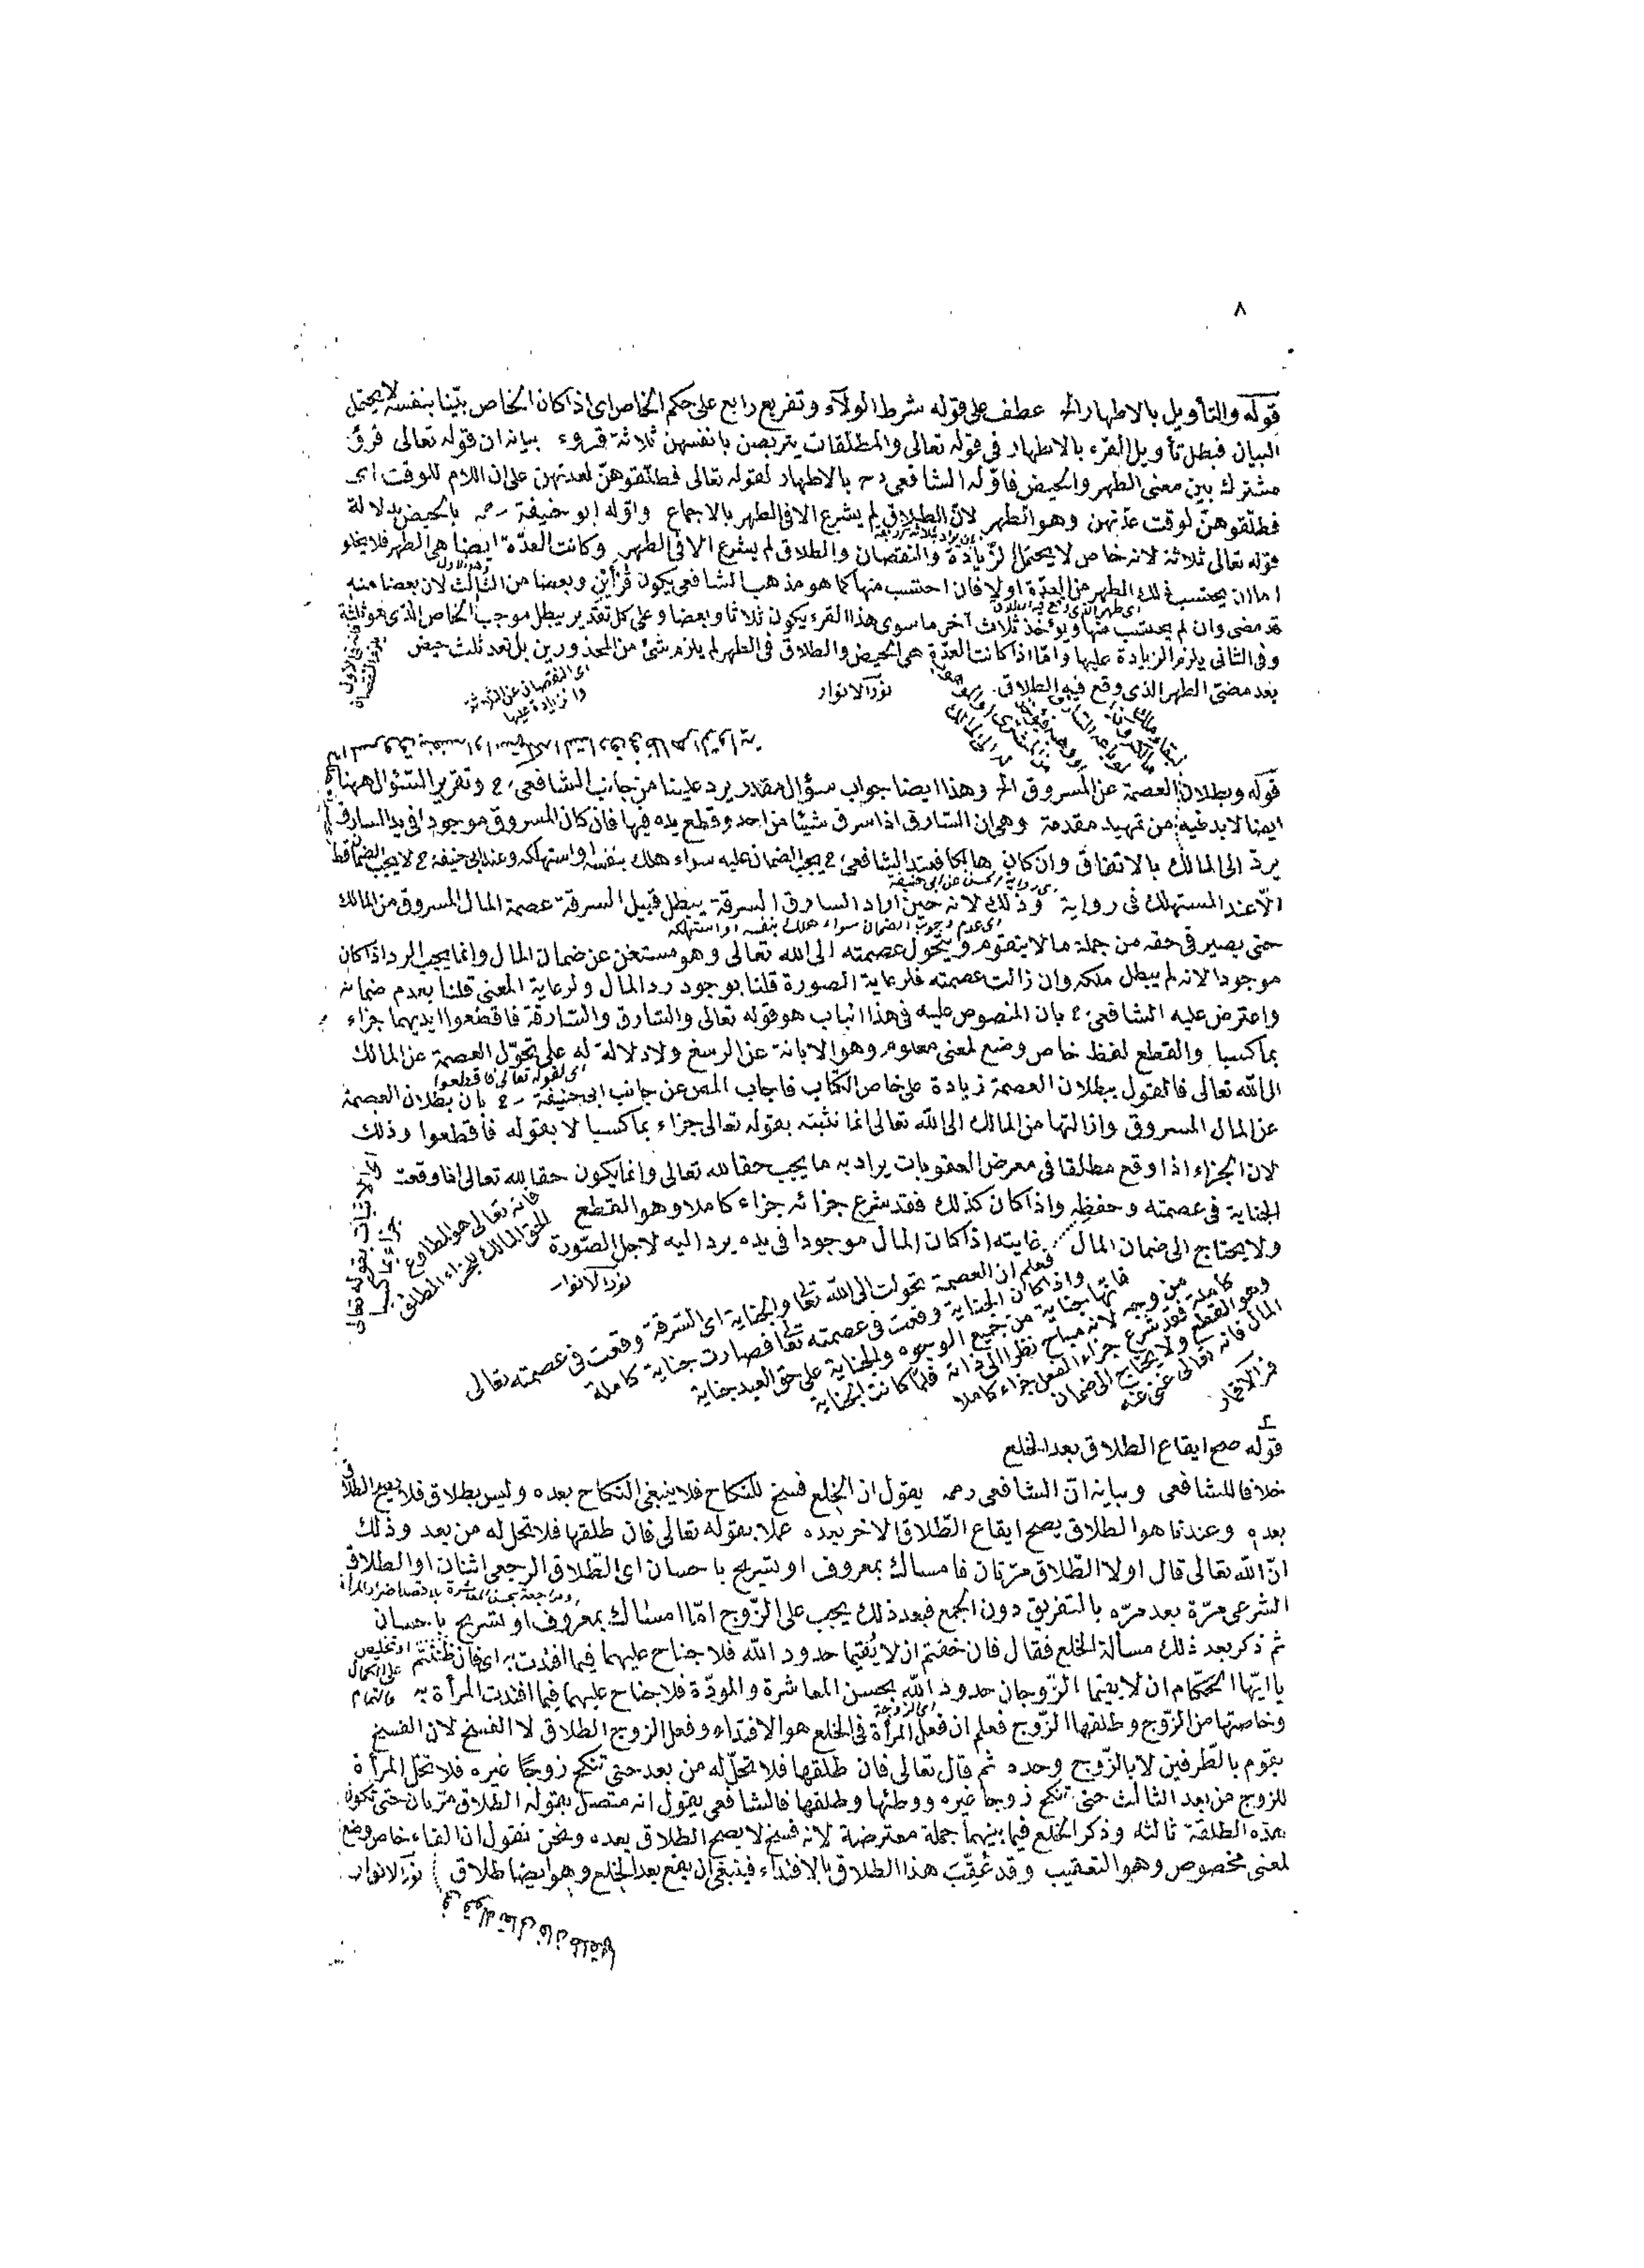 ٨
قوله والتأويل بالاطهار الخ عطف على قوله شرط الولآء وتفريع رابع على حكم الخاص اى اذا كان الخاص بيّنا بنفسه لا يحتمل
البيان فبطل تأويل القرء بالاطهار فى قوله تعالى والمطلقات يتربصن بانفسهن ثلاثة قروء بيانه ان قوله تعالى قروء
مشترك بين معنى الطهر والحيض فاوّله الشافعى رح بالاطهار لقوله تعالى فطلّقوهنّ لعدتهن على ان اللام للوقت اى
فطلّقوهنّ لوقت عدّتهن وهو الطهر لانّ الطلاق لم يشرع الا فى الطهر بالاجماع واوّله ابو حنيفة رحمه بالحيض بدلالة
قوله تعالى ثلاثة لانه خاص لا يحتمل الزّيادة والنقصان والطلاق لم يشرع الا فى الطهر وكانت العدّة ايضا هى الطهر فلا يخلو
اما ان يحتسب ذلك الطهر من العدّة اولا فان احتسب منها كما هو مذهب الشافعى يكون قرأين وبعضا من الثالث لان بعضا منه
قد مضى وان لم يحتسب منها ويؤخذ ثلاث آخر ما سوى هذا القرء يكون ثلاثا وبعضا وعلى كل تقدير يبطل موجب الخاص الذى هو ثلثة
وفى الثانى يلزم الزيادة عليها وامّا اذا كانت العدّة هى الحيض والطلاق فى الطهر لم يلزم شئ من المحذورين بل تعد ثلث حيض
بعد مضىّ الطهر الذى وقع فيه الطلاق. نور الانوار
اى النقصان عن الثلاثة
والزيادة عليها
قوله وبطلان العصمة عن المسروق الخ وهذا ايضا جواب سؤال مقدر يرد علينا من جانب الشافعى رح وتقرير السّؤال ههنا
ايضا لا بد فيه من تمهيد مقدمة وهى ان السّارق اذا سرق شيئا من احد وقطع يده فيها فان كان المسروق موجودا فى يد السارق
يردّ الى المالك بالاتفاق وان كان هالكا فعند الشافعى رح يجب الضمان عليه سواء هلك بنفسه او استهلكه وعند ابى حنيفة رح لا يجب الضمان قط
الّا عند المستهلك فى رواية وذلك لانه حين اراد السارق السرقة يبطل قبيل السرقة عصمة المال المسروق من المالك
اى عدم وجوب الضمان سواء هلك بنفسه او استهلكه
حتى يصير فى حقه من جملة ما لا يتقوم ويتحول عصمته الى الله تعالى وهو مستغن عن ضمان المال وانما يجب الرد اذا كان
موجودا لانه لم يبطل ملكه وان زالت عصمته فلرعاية الصورة قلنا بوجود رد المال ولرعاية المعنى قلنا بعدم ضمانه
واعترض عليه الشافعى رح بان المنصوص عليه فى هذا الباب هو قوله تعالى والسّارق والسّارقة فاقطعوا ايديهما جزاء
بما كسبا والقطع لفظ خاص وضع لمعنى معلوم وهو الابانة عن الرسغ ولا دلالة له على تحوّل العصمة عن المالك
الى الله تعالى فالقول ببطلان العصمة زيادة على خاص الكتاب فاجاب المص عن جانب ابى حنيفة رح بان بطلان العصمة
عن المال المسروق وازالتها من المالك الى الله تعالى انما نثبته بقوله تعالى جزاء بما كسبا لا بقوله فاقطعوا وذلك
لان الجزاء اذا وقع مطلقا فى معرض العقوبات يراد به ما يجب حقا لله تعالى وانما يكون حقا لله تعالى اذا وقعت
الجناية فى عصمته وحفظه واذا كان كذلك فقد شرع جزائه جزاء كاملا وهو القطع
ولا يحتاج الى ضمان المال غايته اذا كان المال موجودا فى يده يرد اليه لاجل الصّورة
نور الانوار
فعلم ان العصمة تحولت الى الله تعا والجناية اى السّرقة وقعت فى عصمته تعالى
واذا كان الجناية وقعت فى عصمته تعا فصارت جناية كاملة
فانّها جناية من جميع الوجوه والجناية على حق العبد جناية
من وجه لانه مباح نظرا الى ذاته فلمّا كانت الجناية
كاملة فقد شرع جزاء الفعل جزاء كاملا
وهو القطع ولا يحتاج الى ضمان
المال فانه تعالى غنى عنه
قمر الاقمار
قوله صح ايقاع الطلاق بعد الخلع
خلافا للشافعى وبيانه انّ الشافعى رحمه يقول ان الخلع فسخ للنّكاح فلا ينبغى النكاح بعده وليس بطلاق فلا يصح الطلاق
بعده وعندنا هو الطلاق يصح ايقاع الطّلاق الاخر بعده عملا بقوله تعالى فان طلقها فلا تحل له من بعد وذلك
انّ الله تعالى قال اولا الطّلاق مرّتان فامساك بمعروف او تسريح باحسان اى الطّلاق الرجعى اثنان او الطلاق
الشرعى مرّة بعد مرّه بالتفريق دون الجمع فبعد ذلك يجب على الزّوج امّا امساك بمعروف او تسريح باحسان
ثم ذكر بعد ذلك مسألة الخلع فقال فان خفتم ان لا يقيما حدود الله فلا جناح عليهما فيما افتدت به اى فان ظننتم
يا ايّها الحكّام ان لا يقيما الزّوجان حدود الله بحسن المعاشرة والمودّة فلا جناح عليهما فيما افتدت المرأة به
وخاصتها من الزّوج وطلقها الزّوج فعلم ان فعل المرأة فى الخلع هو الافتداء وفعل الزوج الطلاق لا الفسخ لان الفسخ
يقوم بالطّرفين لا بالزّوج وحده ثم قال تعالى فان طلقها فلا تحلّ له من بعد حتى تنكح زوجًا غيره فلا تحل المرأة
للزوج من بعد الثالث حتى تنكح زوجا غيره ووطئها وطلقها فالشافعى يقول انه متصل بقوله الطلاق مرّتان حتى تكون
هذه الطلقة ثالثه وذكر الخلع فيما بينهما جملة معترضة لانه فسخ لا يصح الطلاق بعده ونحن نقول ان الفاء خاص وضع
لمعنى مخصوص وهو التعقيب وقد عُقّبَ هذا الطلاق بالافتداء فينبغى ان يقع بعد الخلع وهو ايضا طلاق نور الانوار